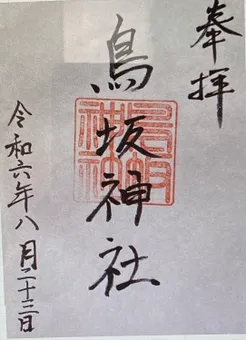 奉拝
鳥坂神社
令和六年八月二十三日